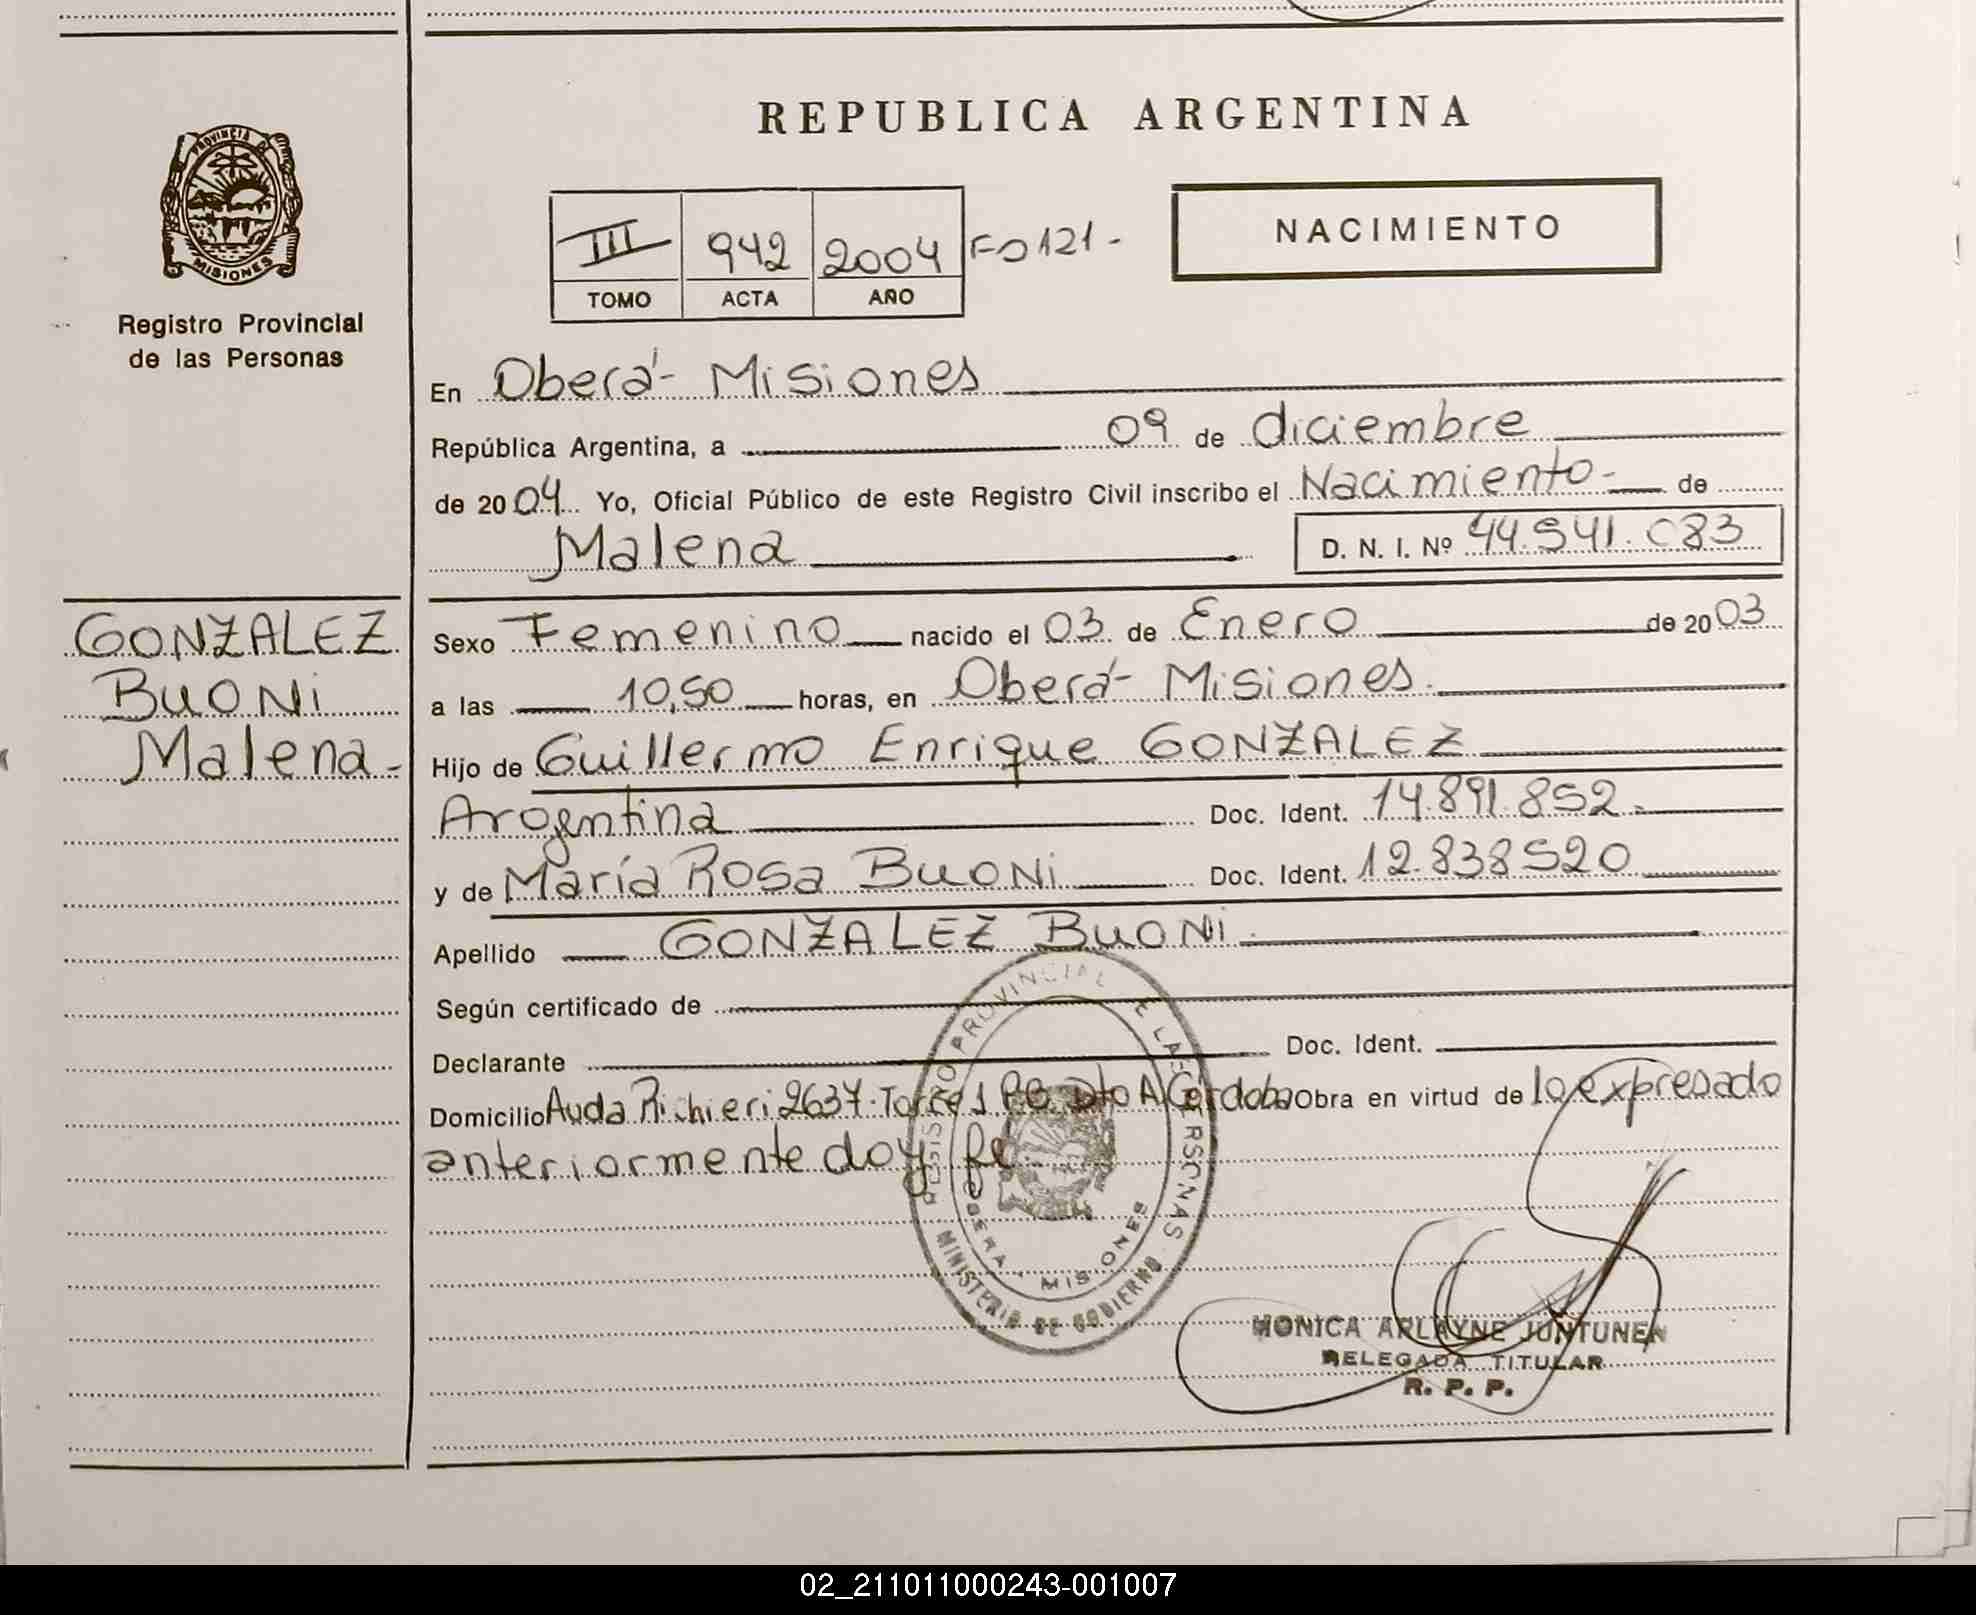 REPUBLICA ARGENTINA
PROVINCIA DE
MISIONES
Registro Provincial
de las Personas
III 942 2004 Fo 121-
TOMO ACTA AÑO
NACIMIENTO
En Oberá- Misiones
República Argentina, a 09 de diciembre
de 2004 Yo, Oficial Público de este Registro Civil inscribo el Nacimiento- de
Malena D. N. I. Nº 44.541.083
GONZALEZ
BUONi
Malena-
Sexo Femenino nacido el 03 de Enero de 2003
a las 10,50 horas, en Oberá- Misiones.
Hijo de Guillermo Enrique GONZALEZ
Argentina Doc. Ident. 14.891.852.-
y de María Rosa BUONi Doc. Ident. 12.838520
Apellido GONZALEZ BUONi.
Según certificado de
Declarante Doc. Ident.
Domicilio Avda Richieri 2637. Torre 1 P.B. Dto A Córdoba Obra en virtud de lo expresado
anteriormente doy fe.
REGISTRO PROVINCIAL DE LAS PERSONAS
OBERA - MISIONES
MINISTERIO DE GOBIERNO
MONICA ARLAYNE JUNTUNEN
DELEGADA TITULAR
R. P. P.
02_211011000243-001007